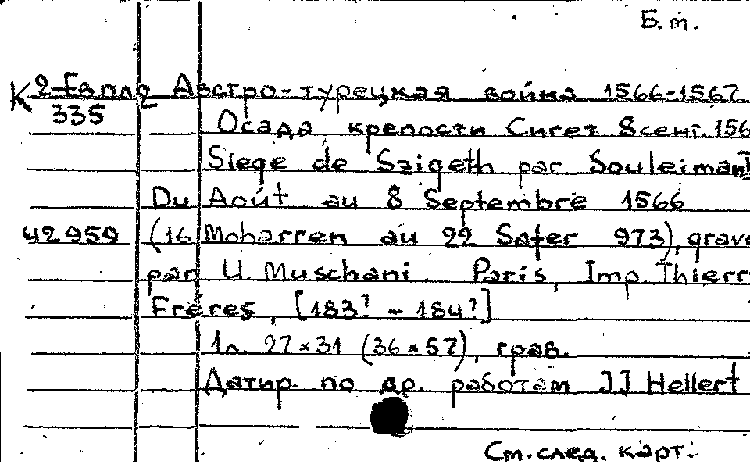 Б.т.
К 2-Евпл2 Австро-турецкая война 1566-1567
335 Осада крепости Сигет 8 сент. 156
Siege de Szigeth par Souleiman I
Du Août au 8 Septembre 1566
42959 (16 Moharren au 22 Safer 973), grave
par U. Muschani Paris, Imp. Thierr
Fréres, [183? - 184?]
1л. 27×31 (36×57), грав.
Датир. по др. работам J J Hellert
См. след. карт.